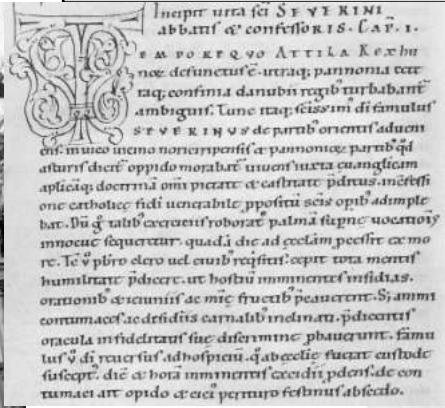 Incipit uita sc̄i SEVERINI
abbatis & confessoris. Cap̄. I.
TEMPORE QUO ATTILA Rex hu
noꝝ defunctus ē. utraq; pannonia cete
raq; confinia danubii regib; turbabant̄
ambiguis. Tunc itaq; sc̄issim̄ di famulus
SEVERINUS de partib; orientis adueni
ens. in uico uicino norici ripensis & pannonioꝝ partib; qd̄
asturis dicit̄ oppido morabat̄. uiuens iuxta euangelicam
aplicāq; doctrinā om̄i pietate & castitate p̄ditus. in c̄fessi
one catholicę fidei uenerabile p̄positū sc̄is opib; adimple
bat. Dū g̊ talib; exerciciis roborat̄ palmā supnę uocatiōis
innocuę sequeretur. quadā die ad ęcclam pcessit ex mo
re. Tc̄ p̄bro clero uel ciuib; reqsitis. cepit tota mentis
humilitate p̄dicere. ut hostiū imminentes insidias.
orationib; & ieiuniis ac mię fructib; p̄cauerent. Sꝫ animi
contumaces. ac desidiis carnalib; inclinati. p̄dicentis
oracula infidelitatis suę discrimine pbauerunt. famu
lus ū di reuersus ad hospiciū. q̊ ab ęcclię fuerat custode
suscept᷒. diē & horā imminentis excidii pdens. de con
tumaci ait opido & cici perituro festinus abscedo.